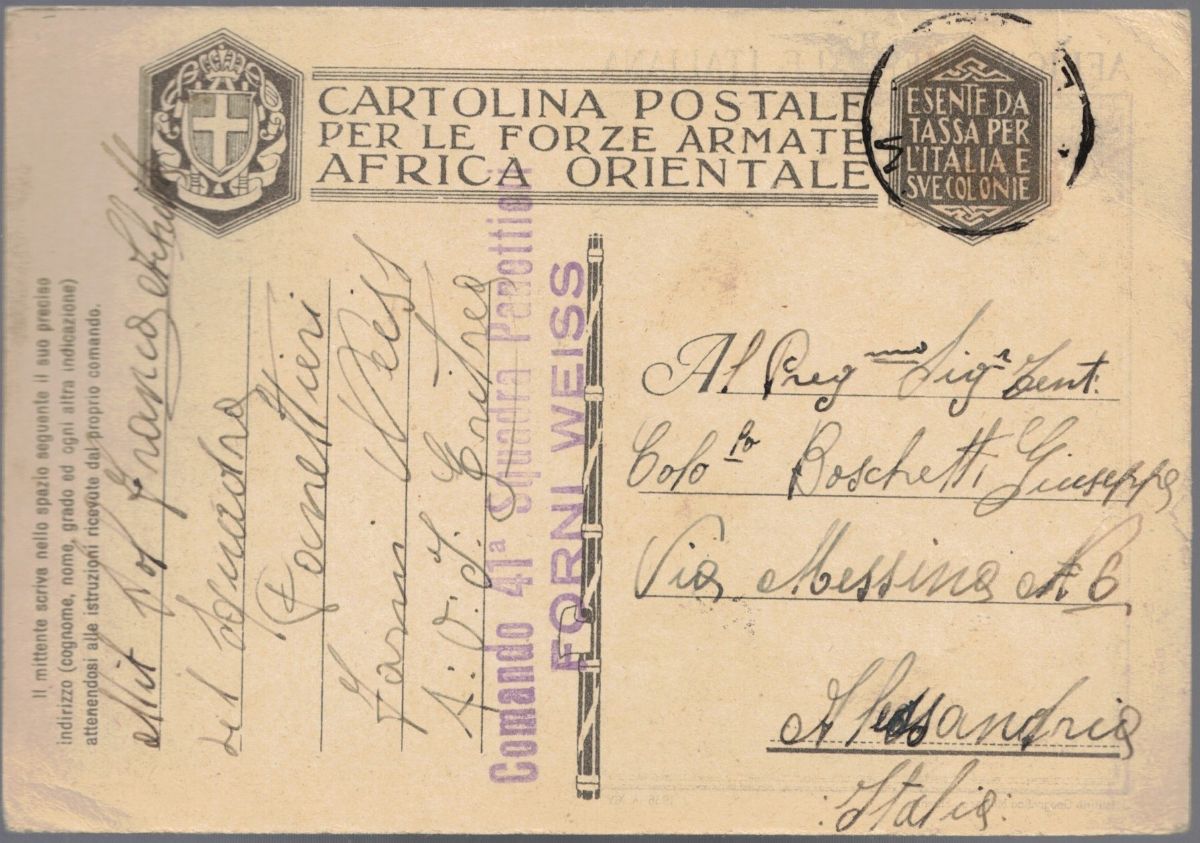 CARTOLINA POSTALE
PER LE FORZE ARMATE
AFRICA ORIENTALE
ESENTE DA
TASSA PER
L'ITALIA E
SVE COLONIE
Il mittente scriva nello spazio seguente il suo preciso
indirizzo (cognome, nome, grado ed ogni altra indicazione)
attenendosi alle istruzioni ricevute dal proprio comando.
Mit
del Squadra
Panettieri
Forni Weiss
A. O. I. Eritrea
Comando 41ª Squadra Panettieri
FORNI WEISS
Al Preg mo Sig r Tent.
Colo lo Boschetti Giuseppe
Via Messina N 6
Alessandria
Italia